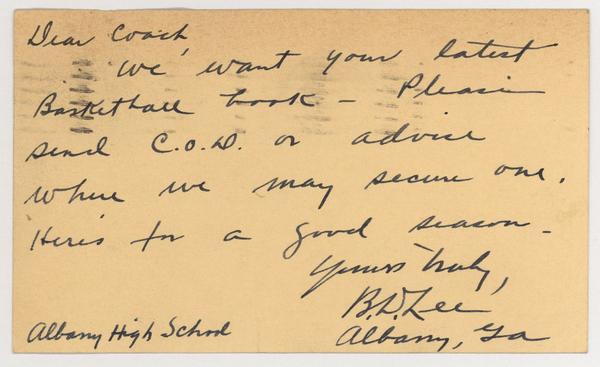 Dear Coach,
We want your latest
Basketball book - Please
send C.O.D. or advise
where we may secure one.
Here's for a good season -
Yours truly,
B.D. Lee
Albany High School
Albany, Ga